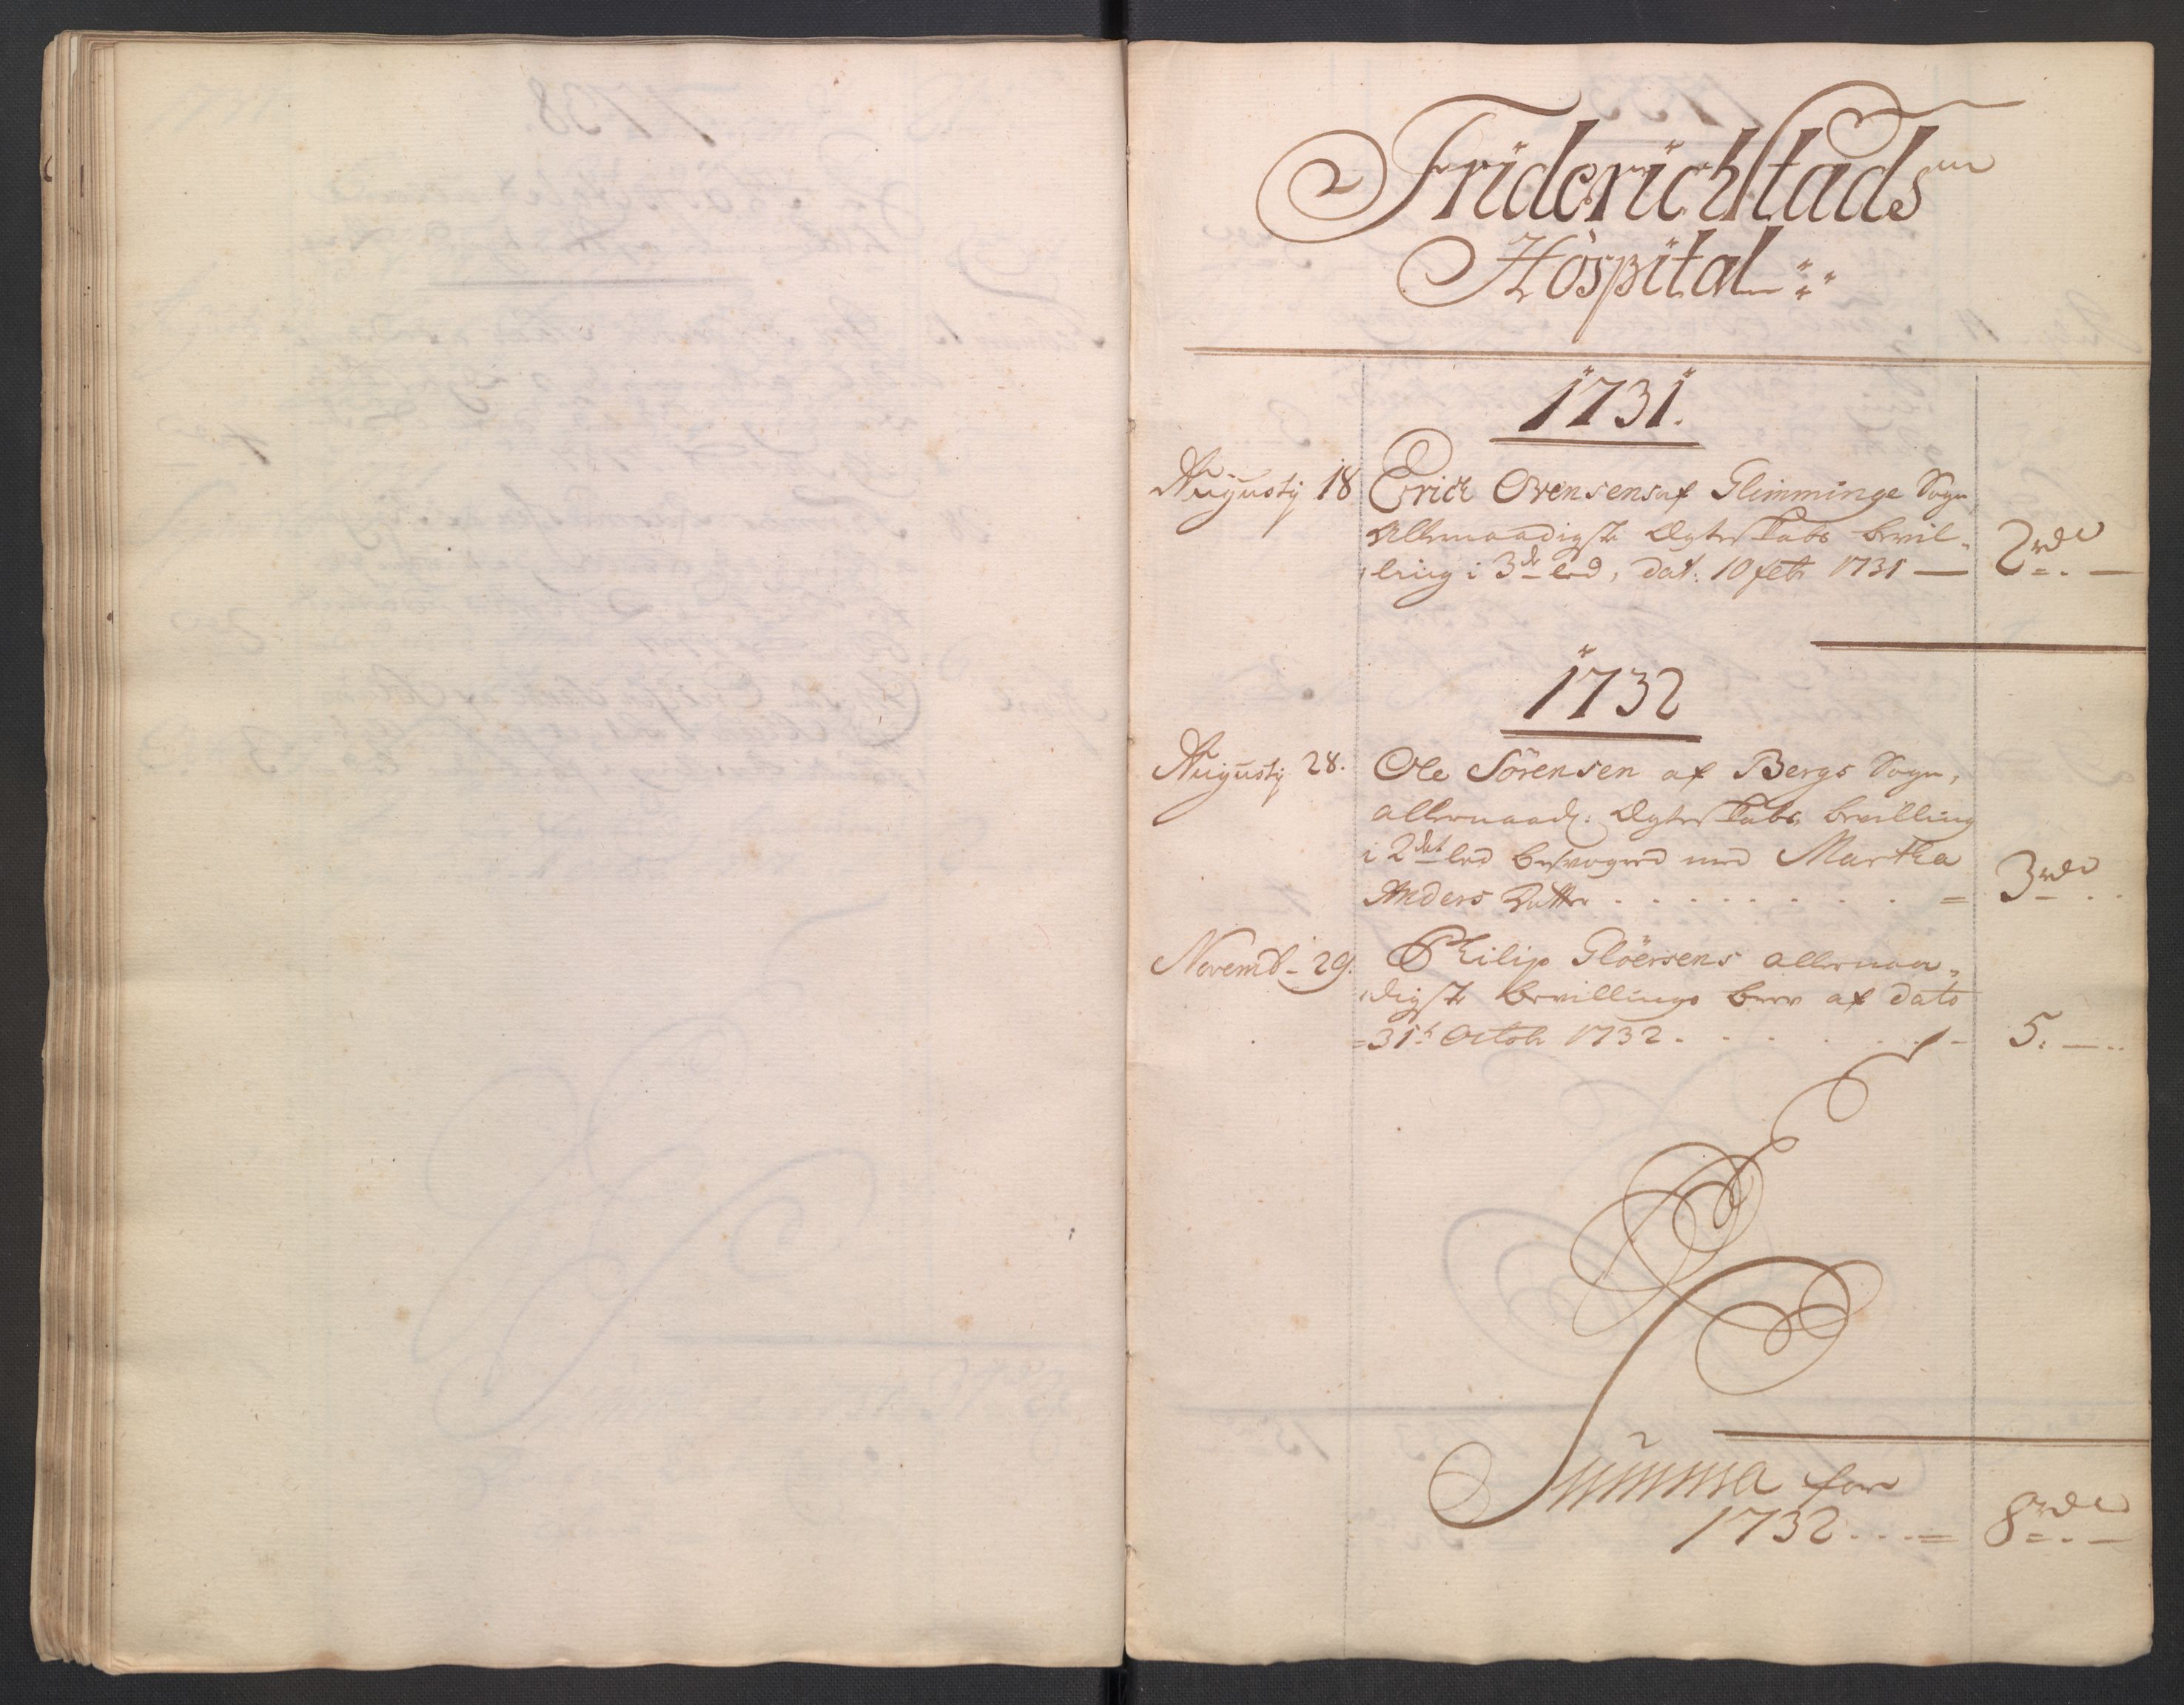 Friderichstads
Hospital
1731.
Augustij 18 Erick Svensens af Glimminge Sogn
Allernaadigste Ægteskabs bevil-
ling i 3de led, dat: 10 feb 1731 — 2 rdr
1732
Augustij 28. Ole Sörensen af Bergs Sogn,
allernaad: Ægteskabs bevilling
i 2det led besvogred med Martha
Anders Datter . . . . . . . . = 3 rdr
Novemb. 29. Philip Gloërsens allernaa-
digste bevillings brev af dato
31t Octob 1732 . . . . . . . 5. —
Summa for
1732 . . . = 8 rdr